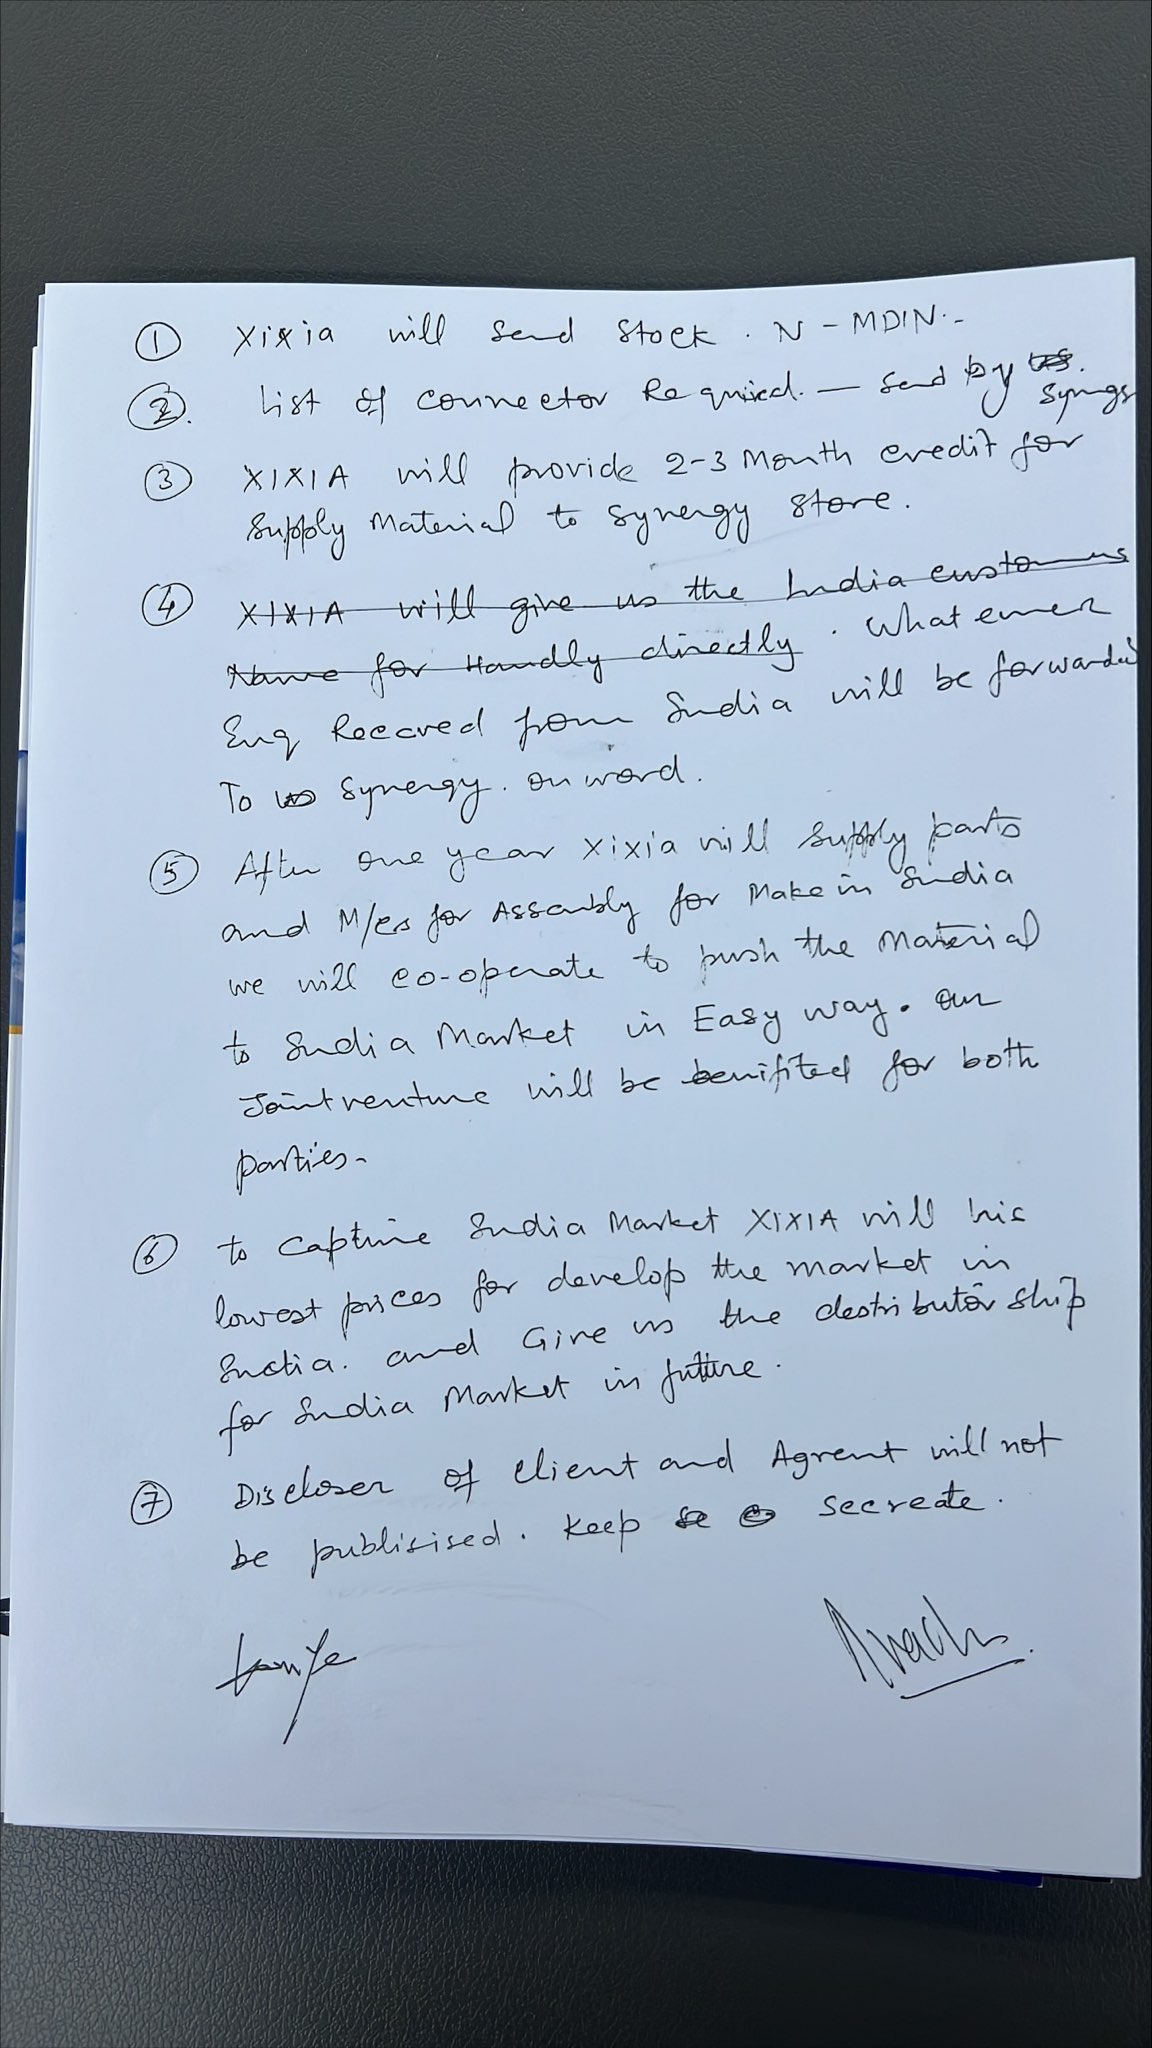 ① Xixia will send stock. N - MDIN.-
②. List of connector Required. — send by us. Synergy
③ XIXIA will provide 2-3 Month credit for
supply Material to Synergy store.
④ XIXIA will give us the India customers
Name for Handly directly. What ever
Enq Recaved from India will be forwarded
To us Synergy. on word.
⑤ After one year Xixia will supply parts
and M/es for Assembly for Make in India
we will co-operate to push the Material
to India Market in Easy way. our
Joint venture will be benifited for both
parties-
⑥ to capture India Market XIXIA will his
lowest prices for develop the market in
India. and Give us the destributor ship
for India Market in future.
⑦ Discloser of client and Agrent will not
be publisised. Keep secreate.